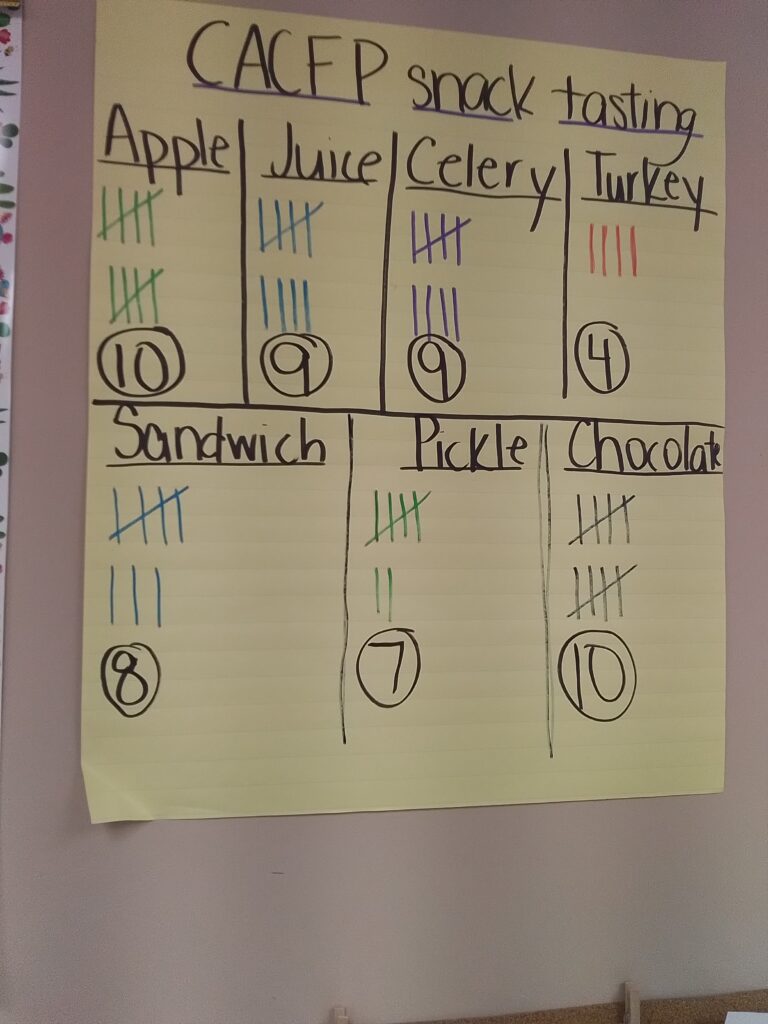 CACFP snack tasting
Apple Juice Celery Turkey
10 9 9 4
Sandwich Pickle Chocolate
8 7 10